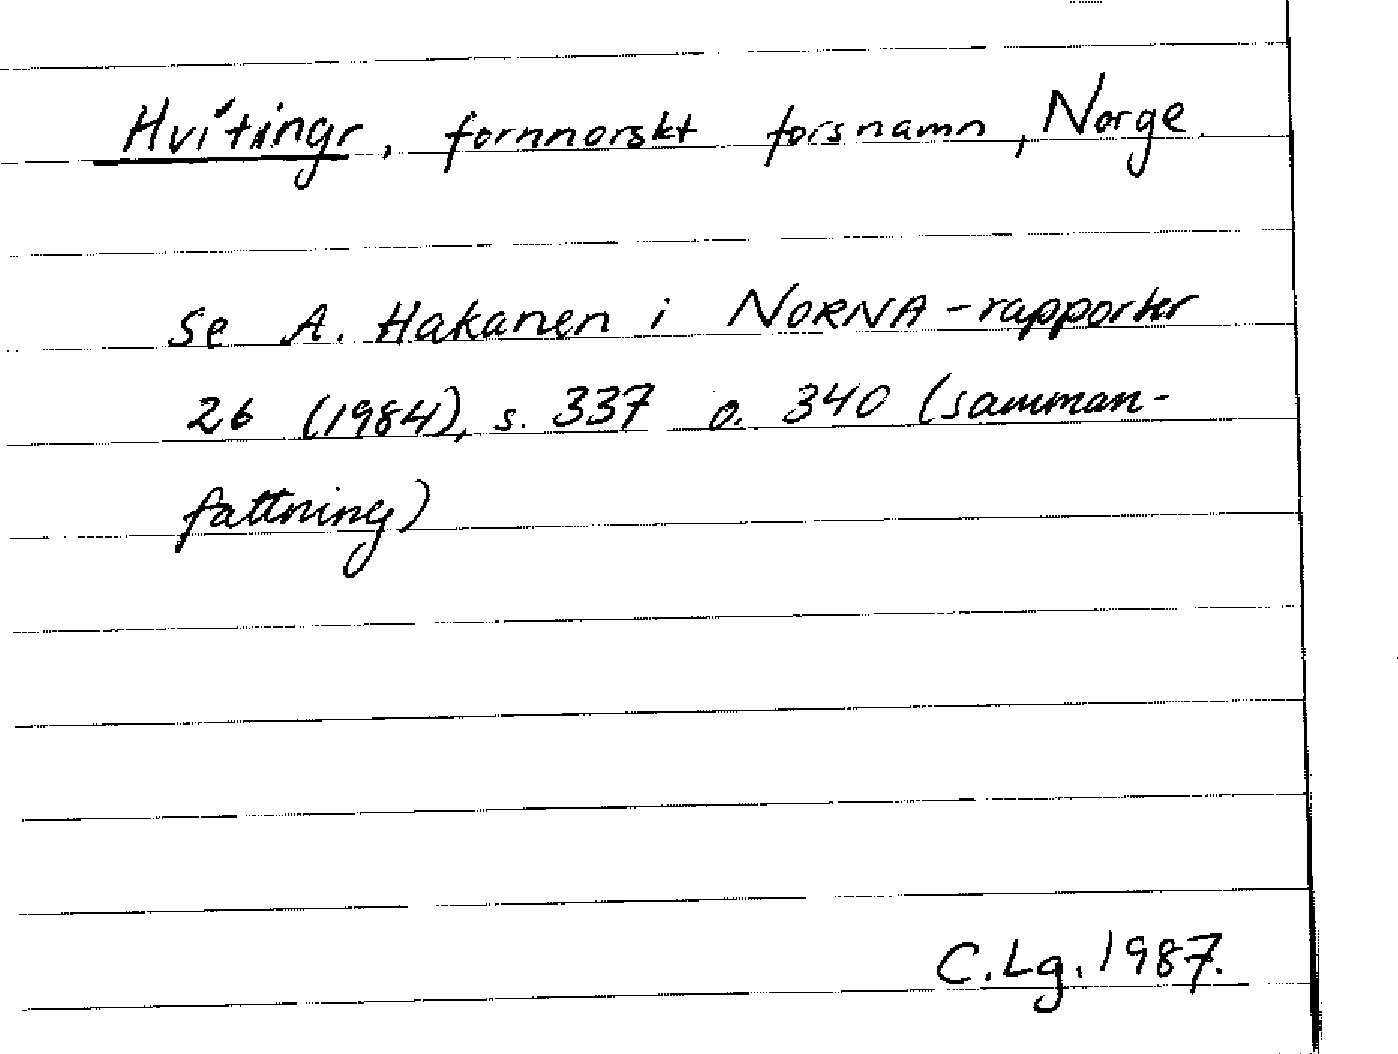 Hvítingr, fornnorskt forsnamn, Norge.
Se A. Hakanen i NORNA-rapporter
26 (1984), s. 337 o. 340 (samman-
fattning)
C.Lg. 1987.